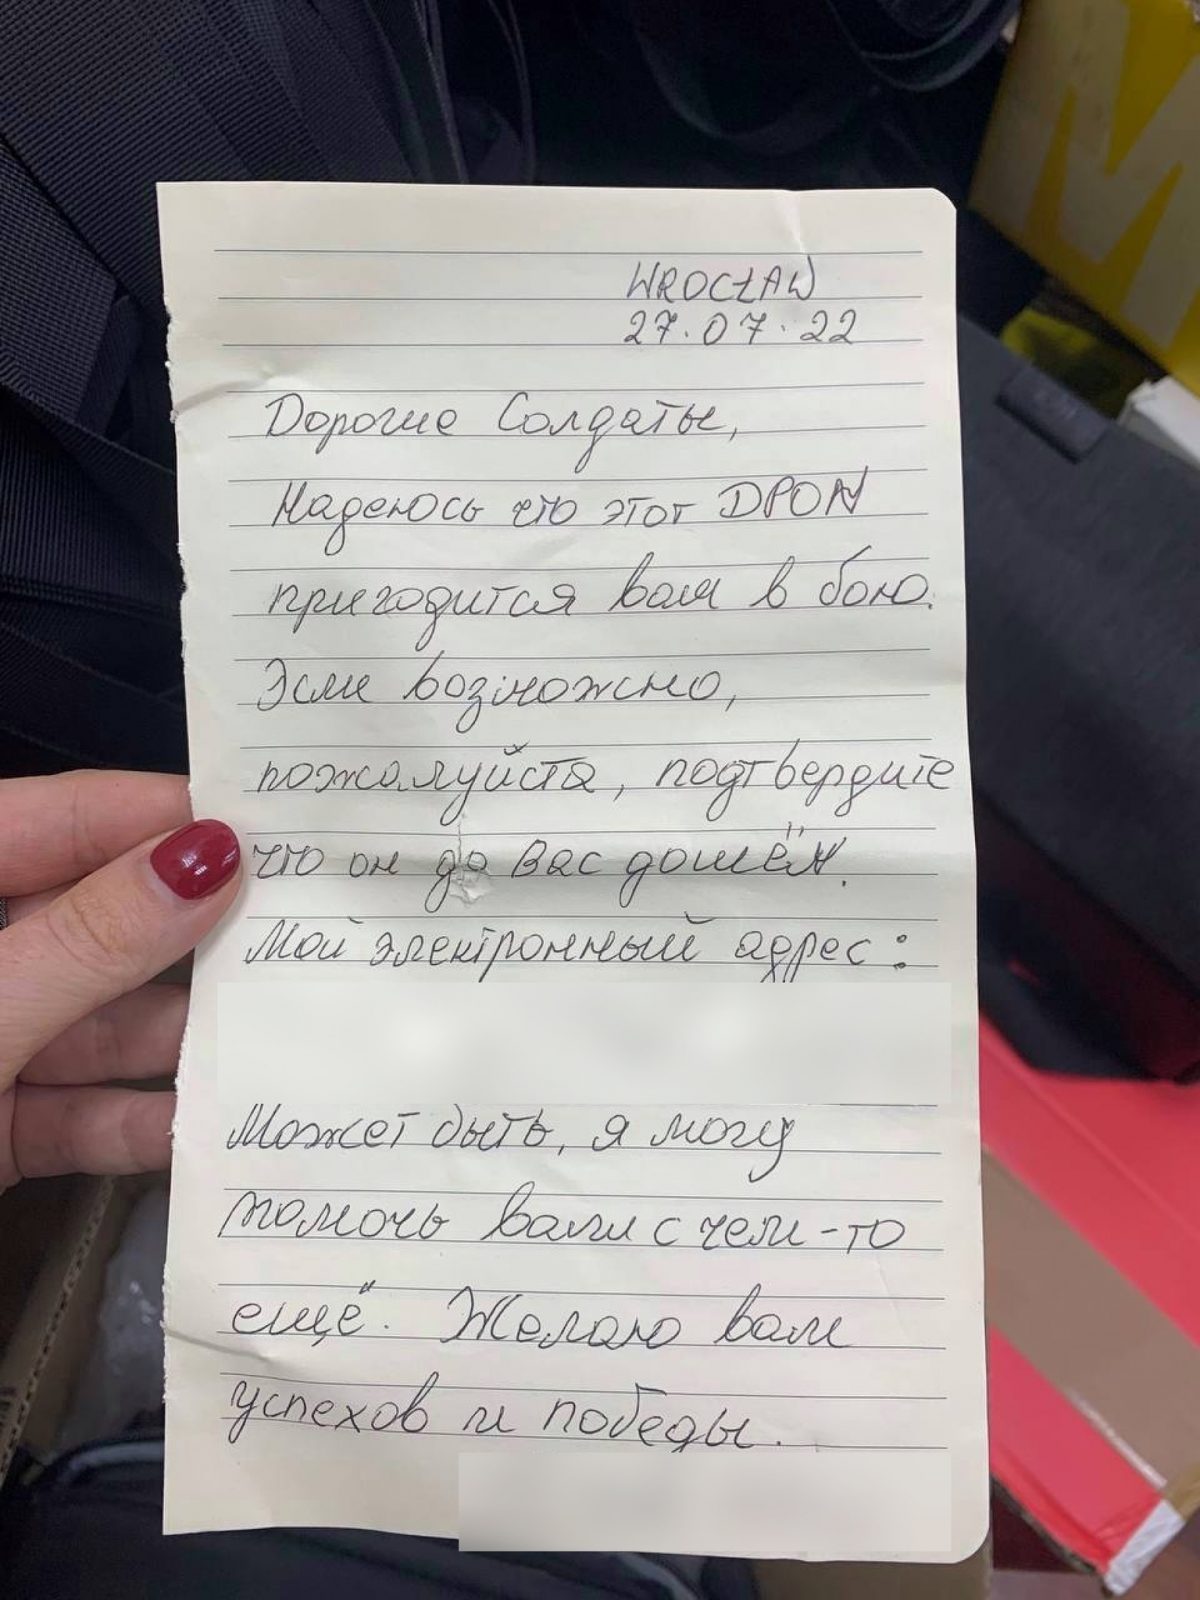 WROCŁAW
27.07.22
Дорогие Солдаты,
Надеюсь что этот DРОN
пригодится вам в бою.
Эсли возможно,
пожалуйста, подтвердите
что он до Вас дошёл.
Мой электронный адрес:
Может быть, я могу
помочь вам с чем-то
ещё. Желаю вам
успехов и победы.